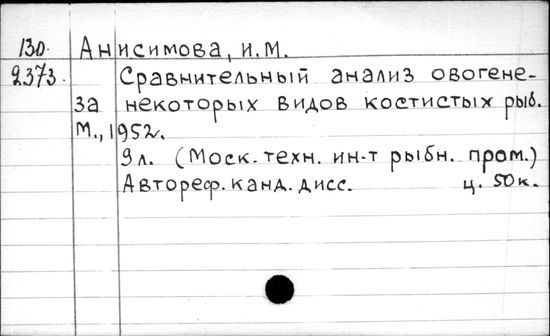 130. Анисимова, И.М.
2373. Сравнительный анализ овогене-
за некоторых видов костистых рыб.
М., 1952.
9л. (Моск. техн. ин-т рыбн. пром.)
Автореф. канд. дисс. ц. 50к.